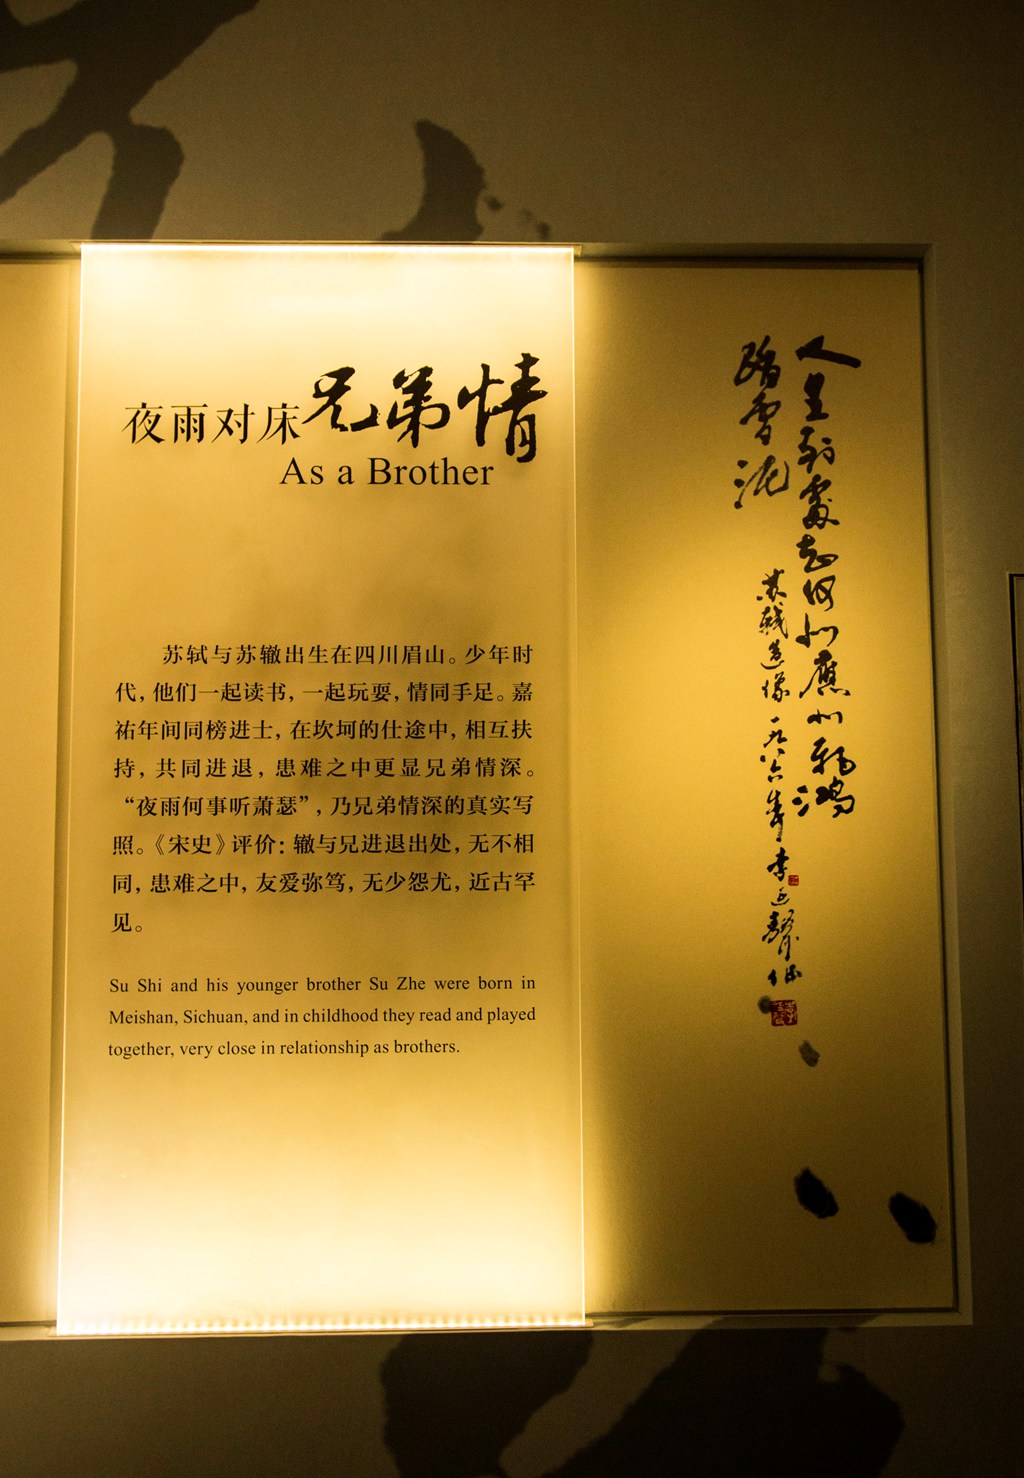 夜雨对床兄弟情
As a Brother
苏轼与苏辙出生在四川眉山。少年时
代，他们一起读书，一起玩耍，情同手足。嘉
祐年间同榜进士，在坎坷的仕途中，相互扶
持，共同进退，患难之中更显兄弟情深。
“夜雨何事听萧瑟”，乃兄弟情深的真实写
照。《宋史》评价：辙与兄进退出处，无不相
同，患难之中，友爱弥笃，无少怨尤，近古罕
见。
Su Shi and his younger brother Su Zhe were born in
Meishan, Sichuan, and in childhood they read and played
together, very close in relationship as brothers.
人生到處知何似應似飛鴻
踏雪泥
苏轼造像一九八六年李延聲作